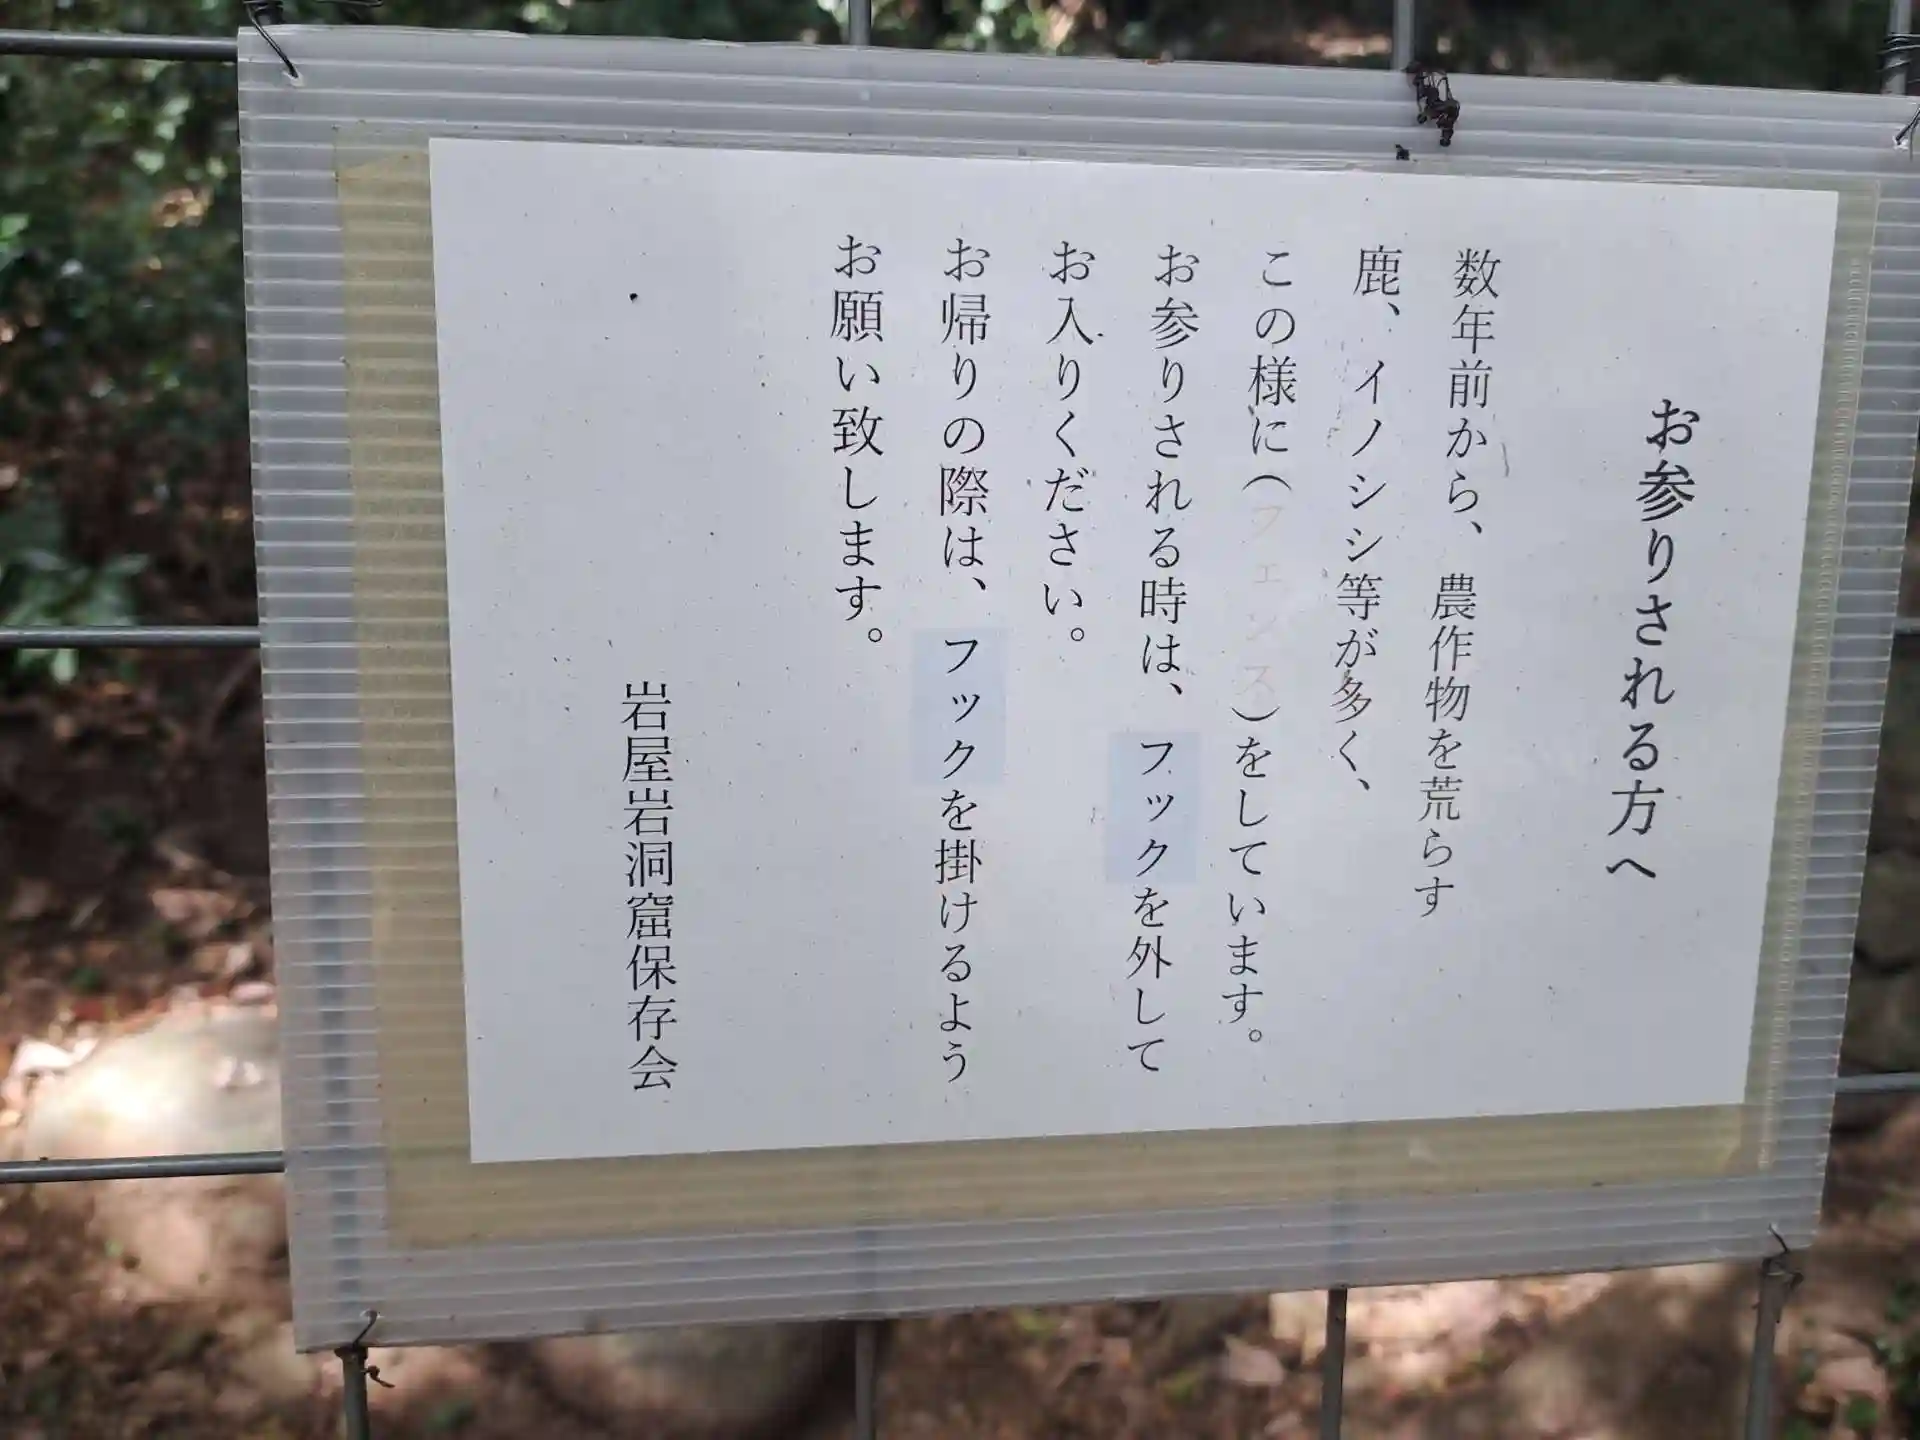 お参りされる方へ
数年前から、農作物を荒らす
鹿、イノシシ等が多く、
この様に(フェンス)をしています。
お参りされる時は、フックを外して
お入りください。
お帰りの際は、フックを掛けるよう
お願い致します。
岩屋岩洞窟保存会